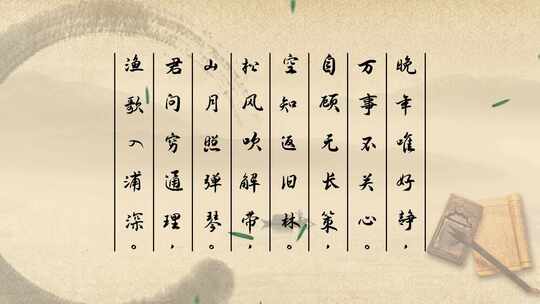 晚年唯好静，
万事不关心。
自顾无长策，
空知返旧林。
松风吹解带，
山月照弹琴。
君问穷通理，
渔歌入浦深。